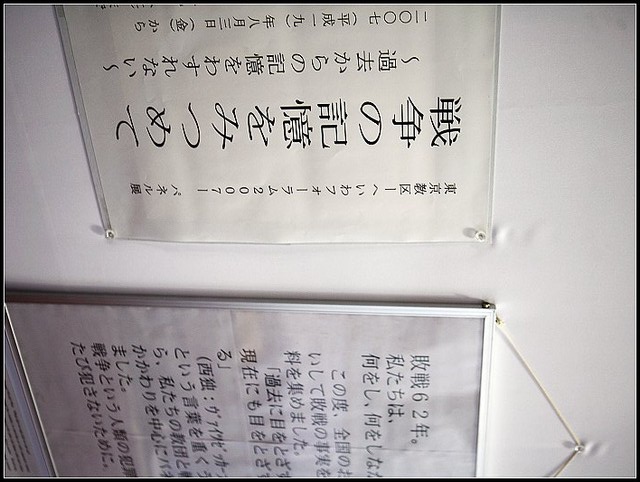 東京教区ーへいわフォーラム2007ー パネル展
戦争の記憶をみつめて
～過去からの記憶をわすれない～
二〇〇七（平成一九）年八月三日（金）から
敗戦62年。
私たちは、
何をし、何をしな
この度、全国のお
いして敗戦の事実を
料を集めました。
「過去に目をとざす
現在にも目をとざす
る」
（西独：ヴァイツゼッカー
という言葉を重くう
ら、私たちの教団と戦
かかわりを中心にパ
ました。
戦争という人類の犯罪
たび犯さないために。